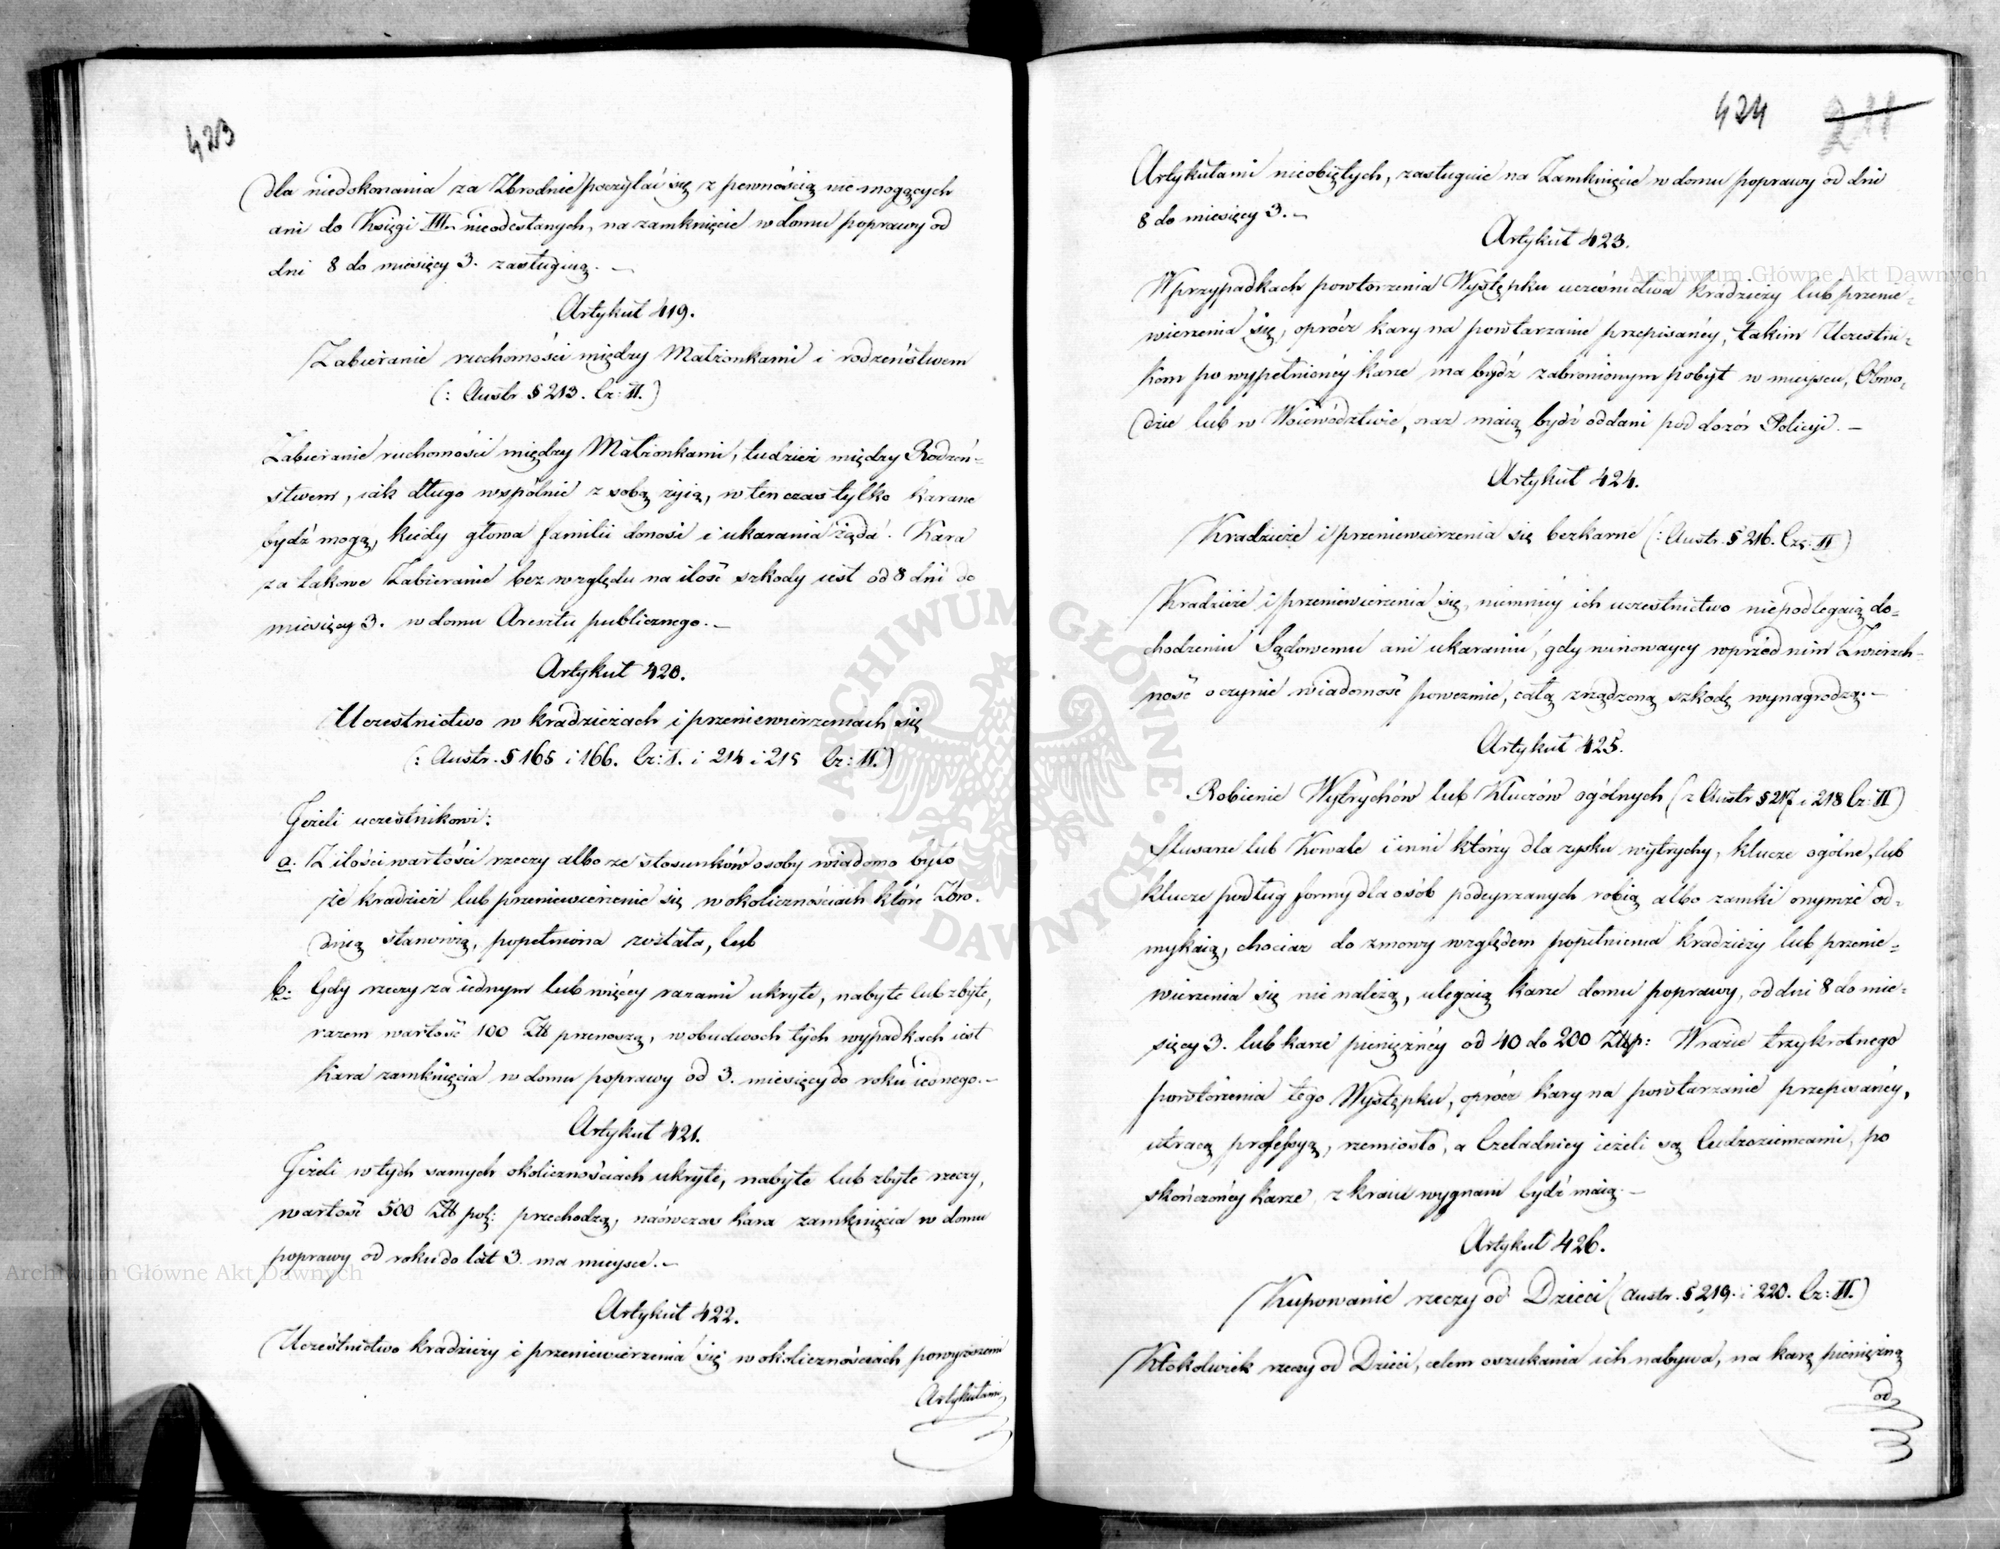 423
dla niedokonania za Zbrodnie poczytać się z pewnością nie mogących
ani do Księgi III. nieodesłanych, na zamknięcie w domu poprawy od
dni 8 do miesięcy 3. zasługuią. —
Artykuł 419.
Zabieranie ruchomości między Małżonkami i rodzeństwem
(: Austr. § 213. Cz: II.)
Zabieranie ruchomości między Małżonkami, tudzież między Rodzeń=
stwem, iak długo wspólnie z sobą żyią, w ten czas tylko karane
bydź mogą, kiedy głowa familii donosi i ukarania żąda. Kara
za takowe Zabieranie bez względu na ilość szkody iest od 8 dni do
miesięcy 3. w domu Aresztu publicznego. —
Artykuł 420.
Uczestnictwo w kradzieżach i przeniewierzeniach się
(: Austr. § 165 i 166. Cz: I. i 214 i 215 Cz: II.)
Jeżeli uczestnikowi:
a. Z ilości wartości rzeczy albo ze stosunków osoby wiadomo było
że kradzież lub przeniewierzenie się w okolicznościach które Zbro=
dnią stanowią, popełniona została, lub
b. Gdy rzeczy za iednym lub więcey razami ukryte, nabyte lub zbyte,
razem wartość 100 Złł przenoszą, w obudwóch tych wypadkach iest
kara zamknięcia w domu poprawy od 3. miesięcy do roku iednego. —
Artykuł 421.
Jeżeli w tych samych okolicznościach ukryte, nabyte lub zbyte rzeczy,
wartość 500 Złł pol: przechodzą, naówczas kara zamknięcia w domu
poprawy od roku do lat 3. ma mieysce. —
Artykuł 422.
Uczestnictwo kradzieży i przeniewierzenia się w okolicznościach powyższemi
Artykułami
424 211
Artykułami nieobiętych, zasługuie na Zamknięcie w domu poprawy od dni
8 do miesięcy 3. —
Artykuł 423.
W przypadkach powtórzenia Występku uczestnictwa kradzieży lub przenie=
wierzenia się, oprócz kary na powtarzanie przepisanéy, takim Uczestni=
kom po wypełnionéy karze ma bydź zabronionym pobyt w mieyscu, Obwo=
dzie lub w Woiewództwie, oraz maią bydź oddani pod dozór Policyi. —
Artykuł 424.
Kradzieże i przeniewierzenia się bezkarne (: Austr. § 216. Czę: II)
Kradzieże i przeniewierzenia się, niemniey ich uczestnictwo niepodlegaią do=
chodzeniu Sądowemu ani ukaraniu, gdy winowaycy wprzód nim Zwierzch=
ność o czynie wiadomość poweźmie, całą zrządzoną szkodę wynagrodzą. —
Artykuł 425.
Robienie Wytrychów lub Kluczów ogólnych (: Austr § 217 i 218 Cz: II)
Slusarze lub Kowale i inni którzy dla zysku wytrychy, klucze ogólne, lub
klucze podług formy dla osób podeyrzanych robią albo zamki onymże od=
mykaią, chociaż do zmowy względem popełnienia kradzieży lub przenie=
wierzenia się nie należą, ulegaią karze domu poprawy, od dni 8 do mie=
sięcy 3. lub karze pieniężnéy od 40 do 200 Złłp: W razie trzykrotnego
powtórzenia tego Występku, oprócz kary na powtarzanie przepisanéy,
utracą professyą, rzemiosło, a Czeladnicy ieżeli są Cudzoziemcami, po
skończonéy karze, z kraiu wygnani bydź maią. —
Artykuł 426.
Kupowanie rzeczy od Dzieci (Austr. § 219. i 220. Cz: II.)
Ktokolwiek rzeczy od Dzieci, celem oszukania ich nabywa, na karę pieniężną
od
Archiwum Główne Akt Dawnych
Archiwum Główne Akt Dawnych
ARCHIWUM GŁÓWNE AKT DAWNYCH